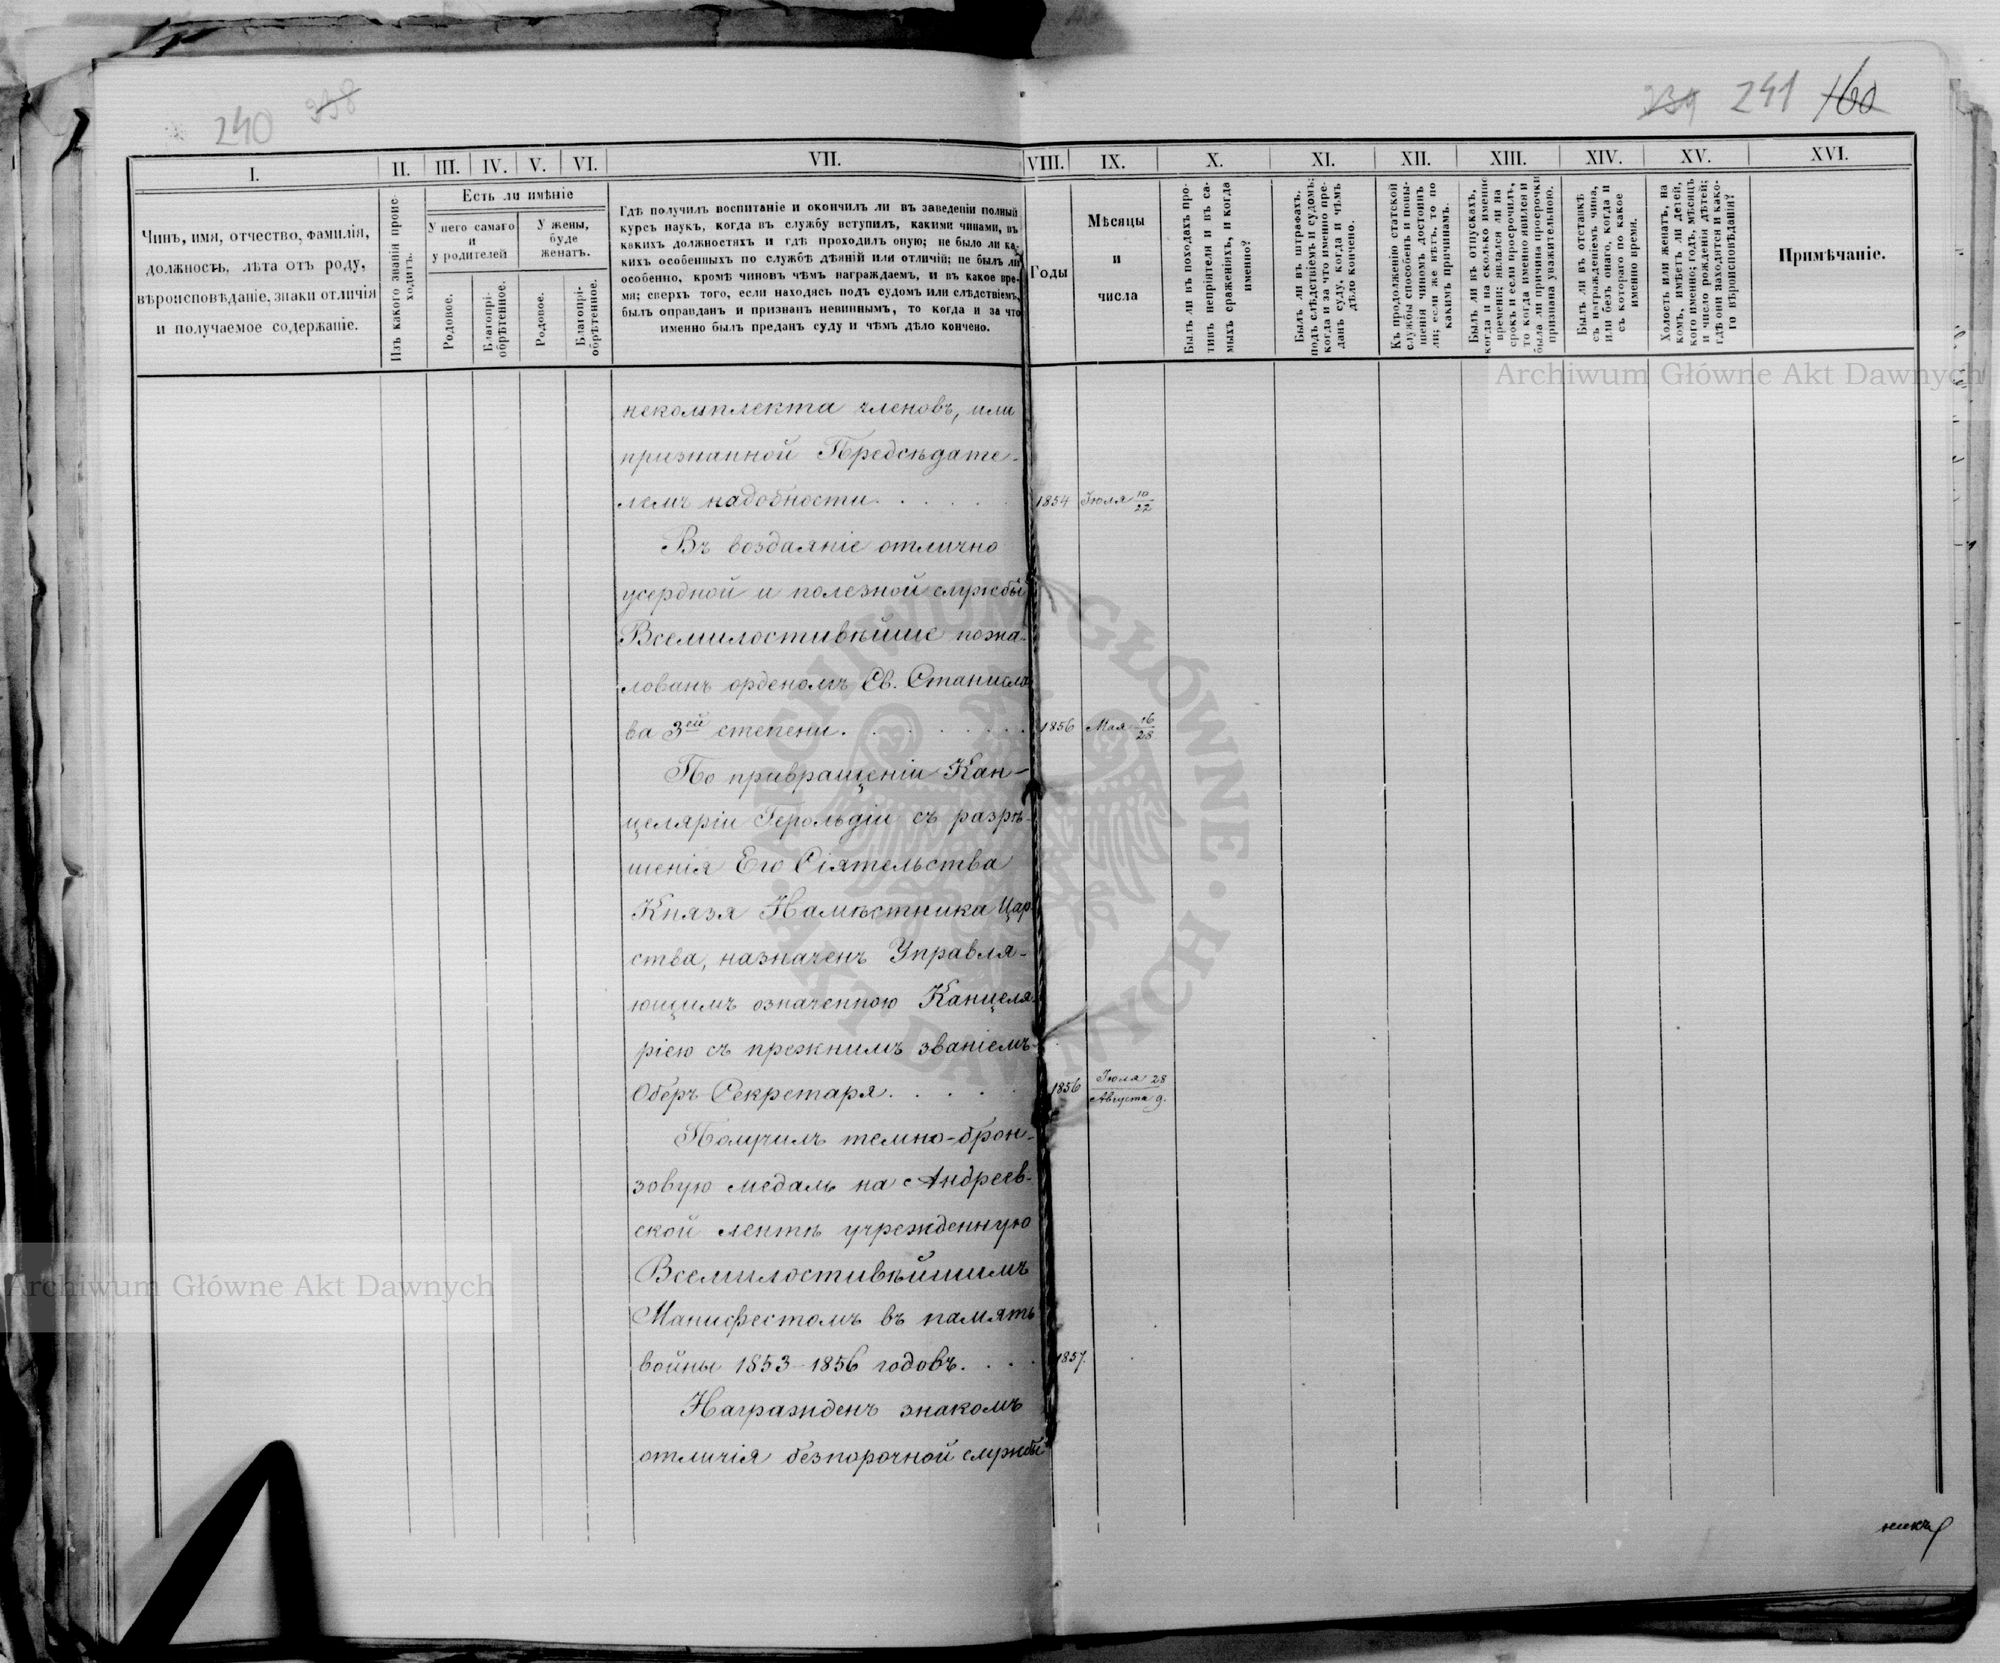 240 338
239 241 160
I. II. III. IV. V. VI. VII. VIII. IX. X. XI. XII. XIII. XIV. XV. XVI.
Чинъ, имя, отчество, фамилія,
должность, лѣта отъ роду,
вѣроисповѣданіе, знаки отличія
и получаемое содержаніе.
Изъ какого званія проис-
ходитъ.
Есть ли имѣніе
У него самаго
и
у родителей
У жены,
буде
женатъ.
Родовое.
Благопрі-
обрѣтенное.
Родовое.
Благопрі-
обрѣтенное.
Гдѣ получилъ воспитаніе и окончилъ ли въ заведеніи полный
курсъ наукъ, когда въ службу вступилъ, какими чинами, въ
какихъ должностяхъ и гдѣ проходилъ оную; не было ли ка-
кихъ особенныхъ по службѣ дѣяній или отличій; не былъ ли
особенно, кромѣ чиновъ чѣмъ награждаемъ, и въ какое вре-
мя; сверхъ того, если находясь подъ судомъ или слѣдствіемъ,
былъ оправданъ и признанъ невиннымъ, то когда и за что
именно былъ преданъ суду и чѣмъ дѣло кончено.
Годы
Мѣсяцы
и
числа
Былъ ли въ походахъ про-
тивъ непріятеля и въ са-
мыхъ сраженіяхъ, и когда
именно?
Былъ ли въ штрафахъ,
подъ слѣдствіемъ и судомъ;
когда и за что именно пре-
данъ суду, когда и чѣмъ
дѣло кончено.
Къ продолженію статской
службы способенъ и повы-
шенія чиномъ достоинъ
ли; если же нѣтъ, то по
какимъ причинамъ.
Былъ ли въ отпускахъ,
когда и на сколько именно
времени; являлся ли на
срокъ и если просрочилъ,
то когда именно явился и
была ли причина просрочки
признана уважительною.
Былъ ли въ отставкѣ
съ награжденіемъ чина,
или безъ онаго, когда и
съ котораго по какое
именно время.
Холостъ или женатъ, на
комъ, имѣетъ ли дѣтей,
кого именно; годъ, мѣсяцъ
и число рожденія дѣтей;
гдѣ они находятся и како-
го вѣроисповѣданія?
Примѣчаніе.
Archiwum Główne Akt Dawnych
некомплекта членовъ, или
признанной Предсѣдате-
лемъ надобности. 1854 Іюля 10/22
Въ воздаяніе отлично
усердной и полезной службы
Всемилостивѣйше пожа-
лованъ орденомъ Св. Станисла-
ва 3ей степени. 1856 Мая 16/28
По превращеніи Кан-
целяріи Герольдіи съ разрѣ-
шенія Его Сіятельства
Князя Намѣстника Цар-
ства, назначенъ Управля-
ющимъ означенною Канцеля-
ріею съ прежнимъ званіемъ
Оберъ Секретаря. 1856 Іюля 28/Августа 9.
Получилъ темно-брон-
зовую медаль на Андреев-
ской лентѣ учрежденную
Всемилостивѣйшимъ
Манифестомъ въ память
войны 1853-1856 годовъ. 1857.
Награжденъ знакомъ
отличія безпорочной службы
ARCHIWUM GŁÓWNE AKT DAWNYCH
Archiwum Główne Akt Dawnych